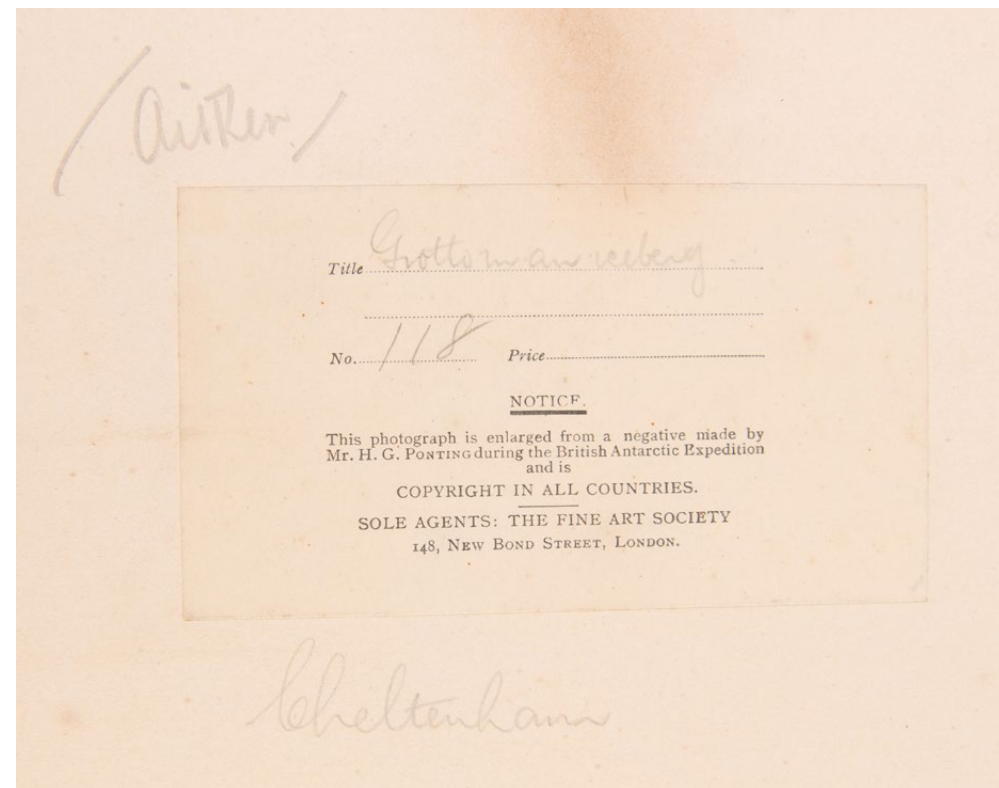 /Aitken/
Title Grotto in an iceberg.
No. 118 Price
NOTICE.
This photograph is enlarged from a negative made by
Mr. H. G. PONTING during the British Antarctic Expedition
and is
COPYRIGHT IN ALL COUNTRIES.
SOLE AGENTS: THE FINE ART SOCIETY
148, NEW BOND STREET, LONDON.
Cheltenham